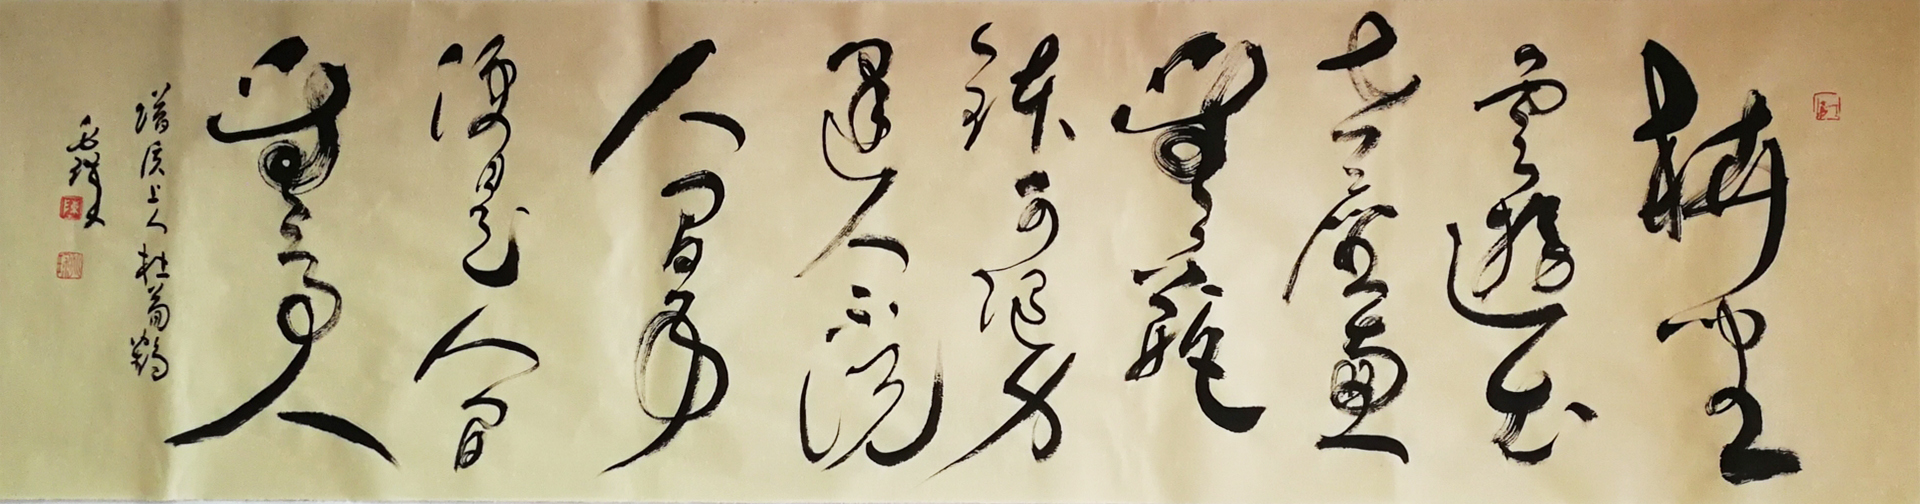 枿坐
雲遊出
世塵兼
無瓶
鉢可隨身
逢人不説
人間事
便是人間
無事人
贈質上人杜荀鶴